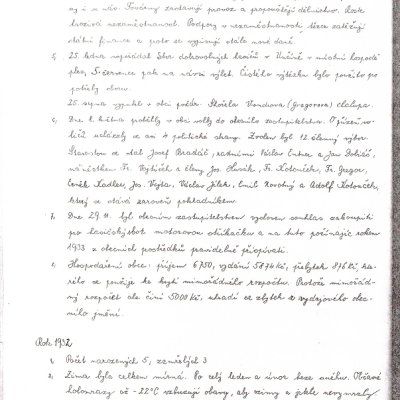 ny i u nás. Továrny zastavují provoz a propouštějí dělnictvo. Roste
hrozivá nezaměstnanost. Podpory v nezaměstnanosti těžce zatěžují
státní finance a proto se vypisují stále nové daně.
5, 25. ledna uspořádal Sbor dobrovolných hasičů v místní hospodě
ples, 5. července pak na návsi výlet. Čistého výtěžku bylo použito pro
potřeby sboru.
25. srpna vypukl v obci požár. Shořela Vondrova (Gregorova) chalupa.
6, Dne 1. května proběhly v obci volby do obecního zastupitelstva. O přízeň vo-
ličů ucházely se zn 4 politické strany. Zvolen byl 12 členný výbor.
Starostou se stal Josef Bradáč, radními Václav a Jan
náměstkem Fr. členy Jos. Husák, Fr. Kolouček, Fr. Gregor,
Čeněk Kadlec, Jos. Vojta, Václav Jílek, Emil Novotný a Adolf Kolouček,
který se stává zároveň pokladníkem.
7, Dne 29. 11. byl obecním zastupitelstvem vysloven souhlas zakoupiti
pro hasičský sbor motorovou stříkačku a na tuto počínajíc rokem
1933 z obecních prostředků pravidelně přispívati.
8, Hospodaření obce: příjem 6750, vydání 5874 Kč, přebytek 876 Kč, kte-
rého se použije ke krytí mimořádného rozpočtu. Protože mimořád-
ný rozpočet ale činí 5000 Kč, uhradí se zbytek z výdajového obec-
ního jmění.
Rok 1932
1, Počet narozených 5, zemřelých 3
2, Zima byla celkem mírná. Po celý leden a únor beze sněhu. Občasné
holomrazy až -22°C vzbuzují obavy, aby ozimy a jetele nevymrzly